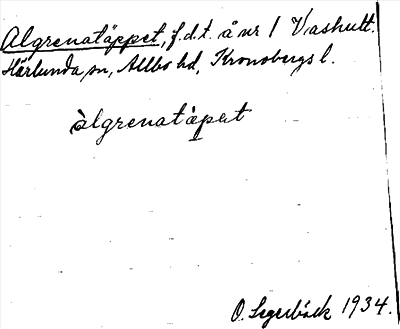 Algrenatäppet, f.d.t. å nr 1 Vashult.
Härlunda sn, Allbo hd, Kronobergs l.
àlgrenatàpet
O. Segerbäck 1934.